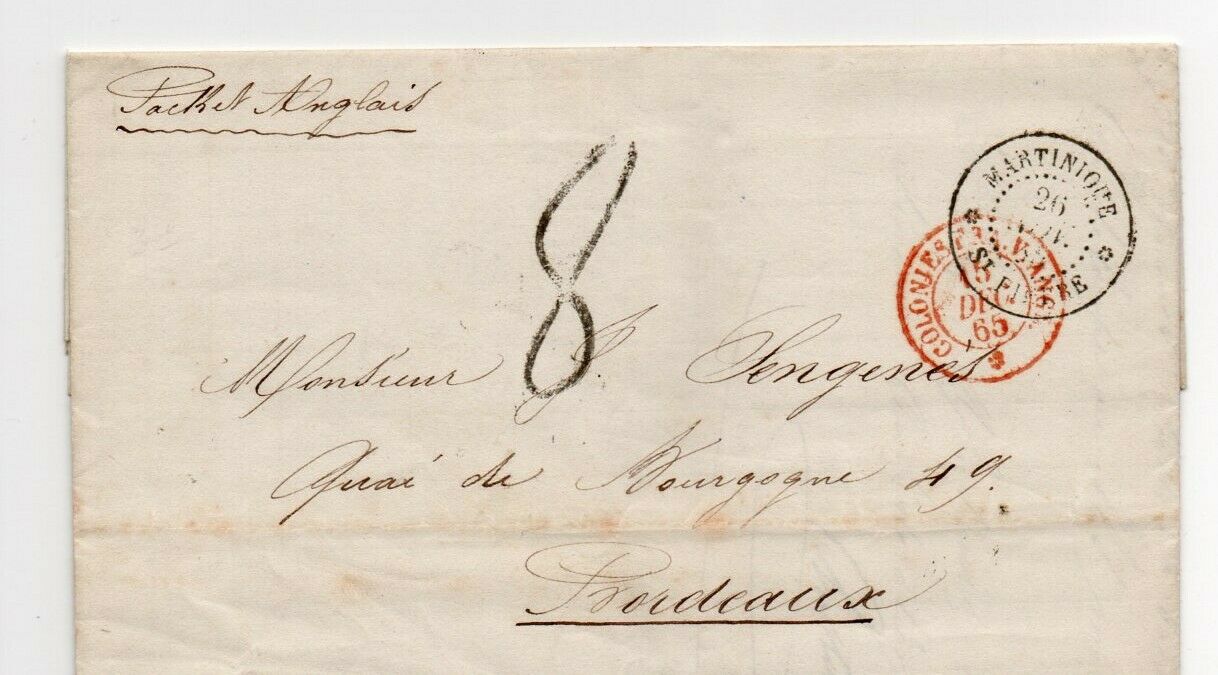 Packet Anglais
8
MARTINIQUE
26
NOV.
ST PIERRE
COLONIES FRA V ANG
15
DEC
65
Monsieur J. Sengenes
Quai de Bourgogne 49.
Bordeaux